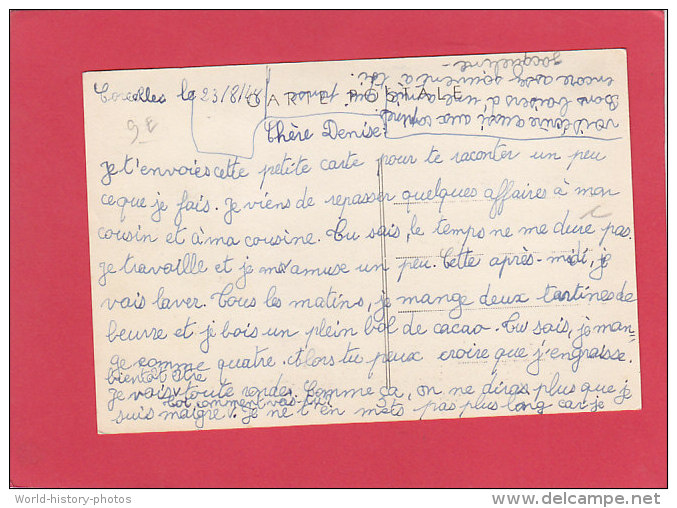 Corcelles le 23/8/48
CARTE POSTALE
Chère Denise:
Je t'envoies cette petite carte pour te raconter un peu
ce que je fais. Je viens de repasser quelques affaires à mon
cousin et à ma cousine. Tu sais, le temps ne me dure pas.
Je travaille et je m'amuse un peu. Cette après-midi, je
vais laver. Tous les matins, je mange deux tartines de
beurre et je bois un plein bol de cacao. Tu sais, je man-
ge comme quatre. Alors tu peux croire que j'engraisse.
bientôt être
Je vais toute ronde. Comme ça, on ne diras plus que je
suis maigre. Je ne t'en mets pas plus long car je
Toi comment vas-tu?
vais écrire aussi aux
Bons baisers d'une
encore souvent à toi.
Jacqueline
World-history-photos
delcampe.net